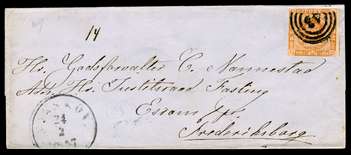 14
Hr. Godsforvalter C. Nannestad
Adr. Hr. Justitsraad Fasting
Esrom pr.
Frederiksborg
24
2